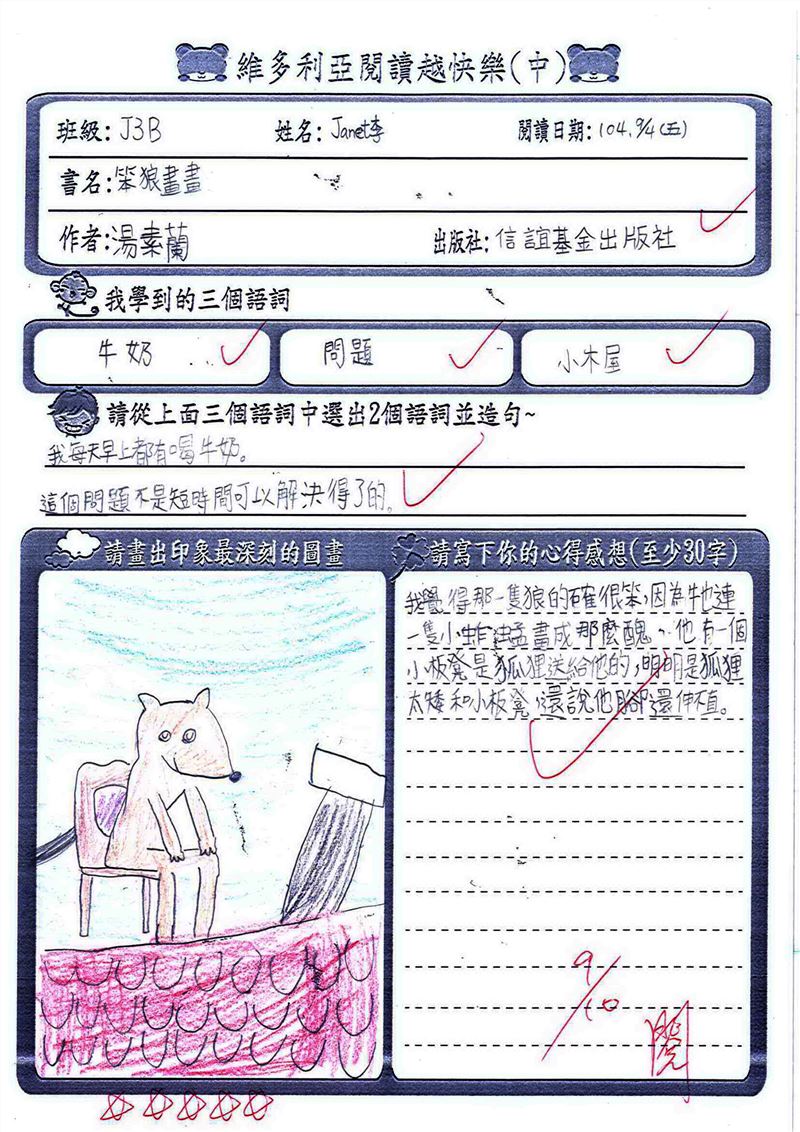 維多利亞閱讀越快樂(中)
班級: J3B 姓名: Janet李 閱讀日期: 104.9/4(五)
書名: 笨狼畫畫
作者: 湯素蘭 出版社: 信誼基金出版社
我學到的三個語詞
牛奶 問題 小木屋
請從上面三個語詞中選出2個語詞並造句~
我每天早上都有喝牛奶。
這個問題不是短時間可以解決得了的。
請畫出印象最深刻的圖畫
請寫下你的心得感想(至少30字)
我覺得那一隻狼的確很笨,因為牠連
一隻小蚱蜢畫成那麼醜、他有一個
小板凳是狐狸送給他的,明明是狐狸
太矮和小板凳,還說他腳還伸不直。
9/10
閱